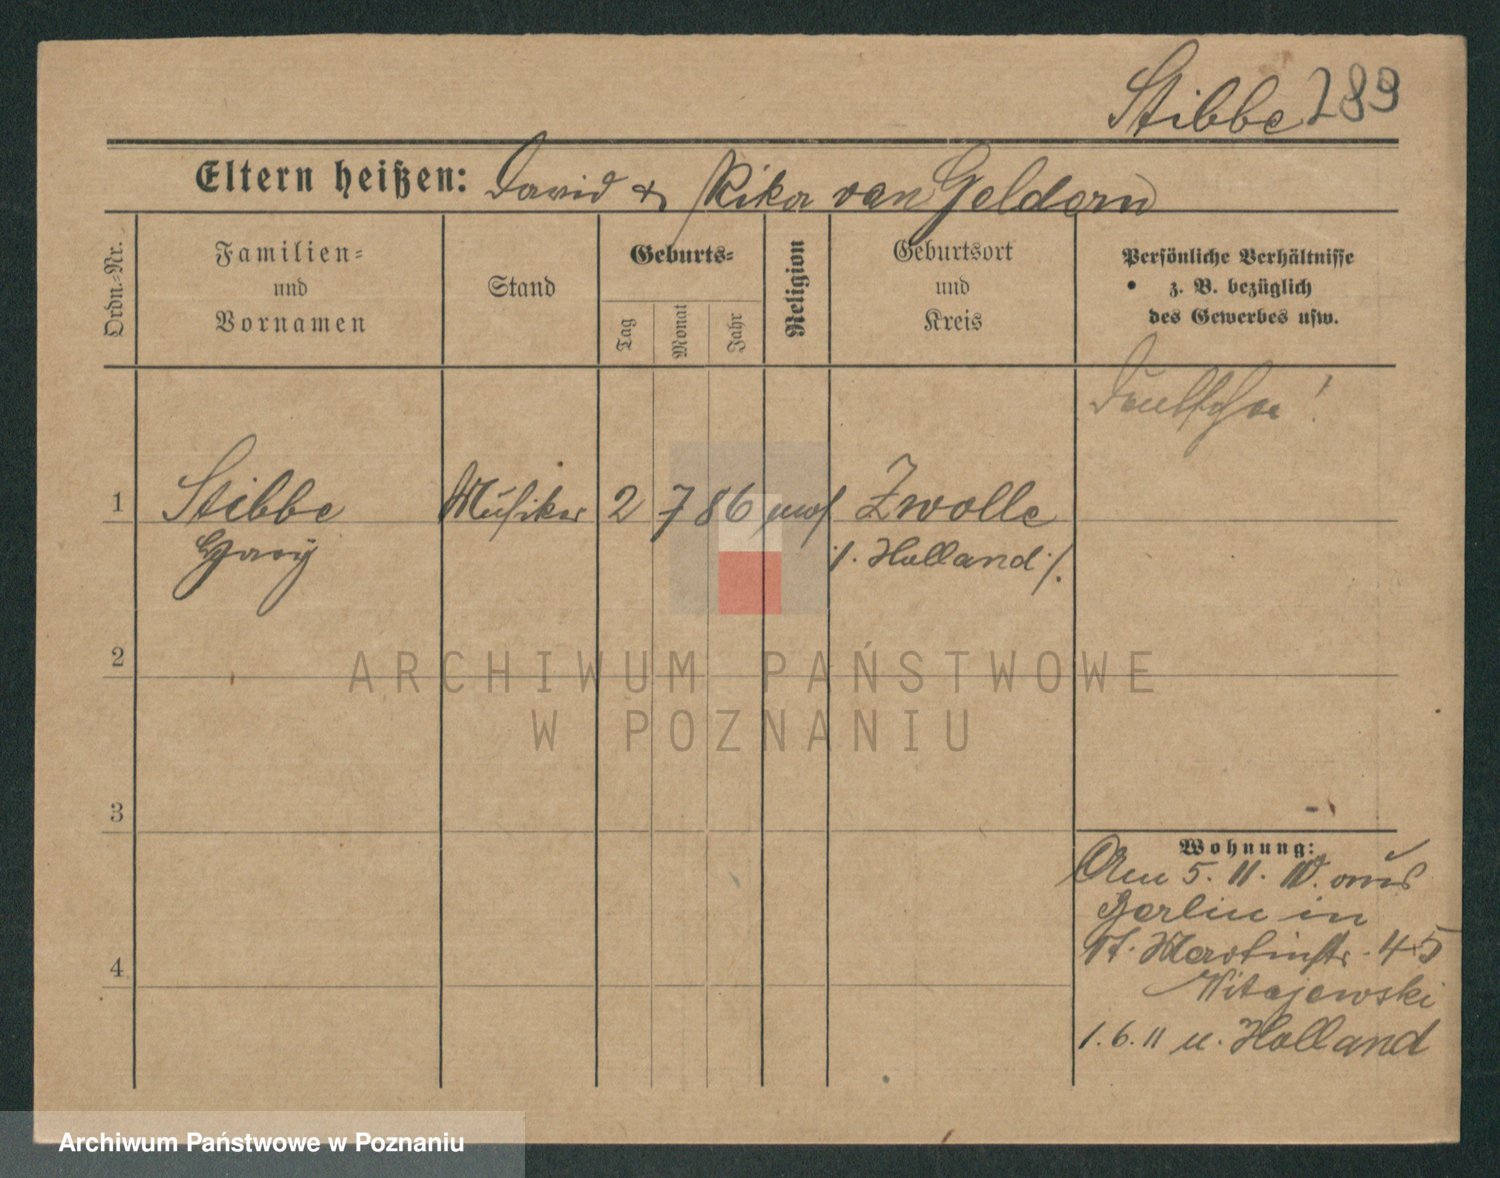 Stibbe 289
Eltern heißen: David & Rika van Geldern
Ordn.-Nr.
Familien-
und
Vornamen
Stand
Geburts-
Tag
Monat
Jahr
Religion
Geburtsort
und
Kreis
Persönliche Verhältnisse
z. B. bezüglich
des Gewerbes usw.
1 Stibbe Musiker 2 7 86 mos Zwolle
/. Holland ./.
2
3
4
Wohnung:
Am 5. 11. 10. aus
Berlin in
St. Martinstr. 45
1. 6. 11 n. Holland
ARCHIWUM PAŃSTWOWE
W POZNANIU
Archiwum Państwowe w Poznaniu